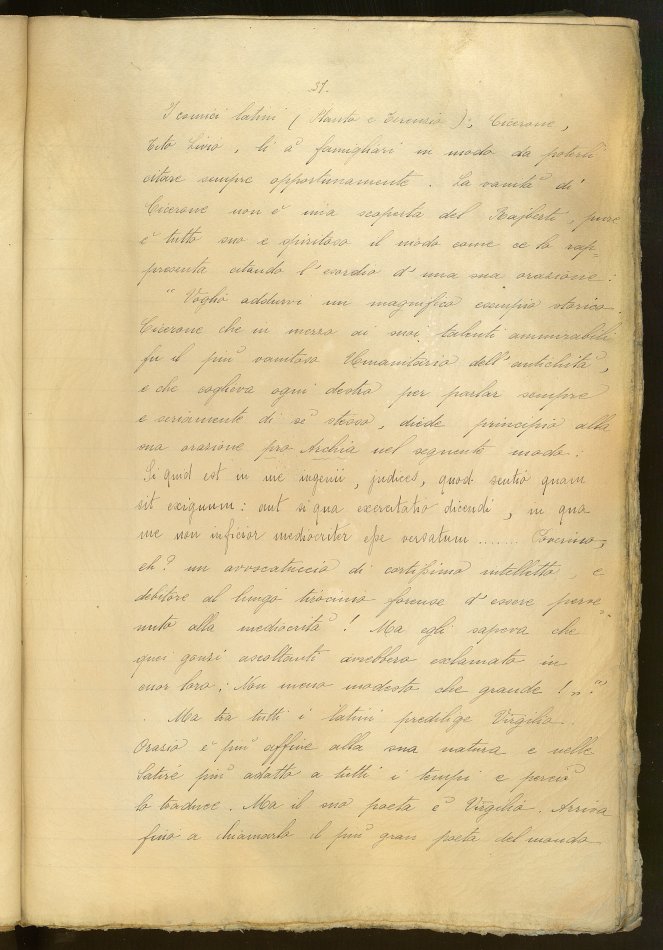 31.
I comici latini (Plauto e Terenzio); Cicerone,
Tito Livio, li à famigliari in modo da poterli
citare sempre opportunamente. La vanità di
Cicerone non è una scoperta del Rajberti, pure
è tutto suo e spiritoso il modo come ce lo rap-
presenta citando l'esordio d'una sua orazione:
"Voglio addurvi un magnifico esempio storico.
Cicerone che in mezzo ai suoi talenti ammirabili
fu il più vanitoso Umanitario dell'antichità,
e che coglieva ogni destro per parlar sempre
e seriamente di sè stesso, diede principio alla
sua orazione pro Archia nel seguente modo:
Si quid est in me ingenii, judices, quod sentio quam
sit exiguum: aut si qua exercitatio dicendi, in qua
me non inficior mediocriter esse versatum ........ Poverino,
eh? un avvocatuccio di cortissimo intelletto, e
debitore al lungo tirocinio forense d'essere perve-
nuto alla mediocrità! Ma egli sapeva che
quei gonzi ascoltanti avrebbero esclamato in
cuor loro: Non meno modesto che grande!"
Ma tra tutti i latini predilige Virgilio.
Orazio è più affine alla sua natura e nelle
Satire più adatto a tutti i tempi e perciò
lo traduce. Ma il suo poeta è Virgilio. Arriva
fino a chiamarlo il più gran poeta del mondo